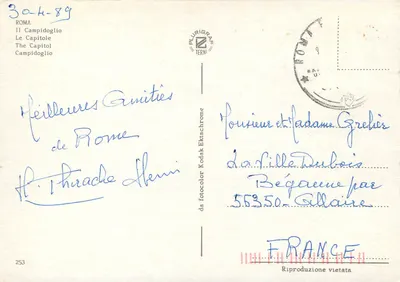 30-4-89
ROMA
Il Campidoglio
Le Capitole
The Capitol
Campidoglio
PLURIGRAF
TERNI
Meilleures Amitiés
de Rome
H. Thirache Henri
Monsieur et Madame Grelier
La Ville Dubois
Béganne par
56350 - Allaire
FRANCE
da fotocolor Kodak Ektachrome
253
Riproduzione vietata